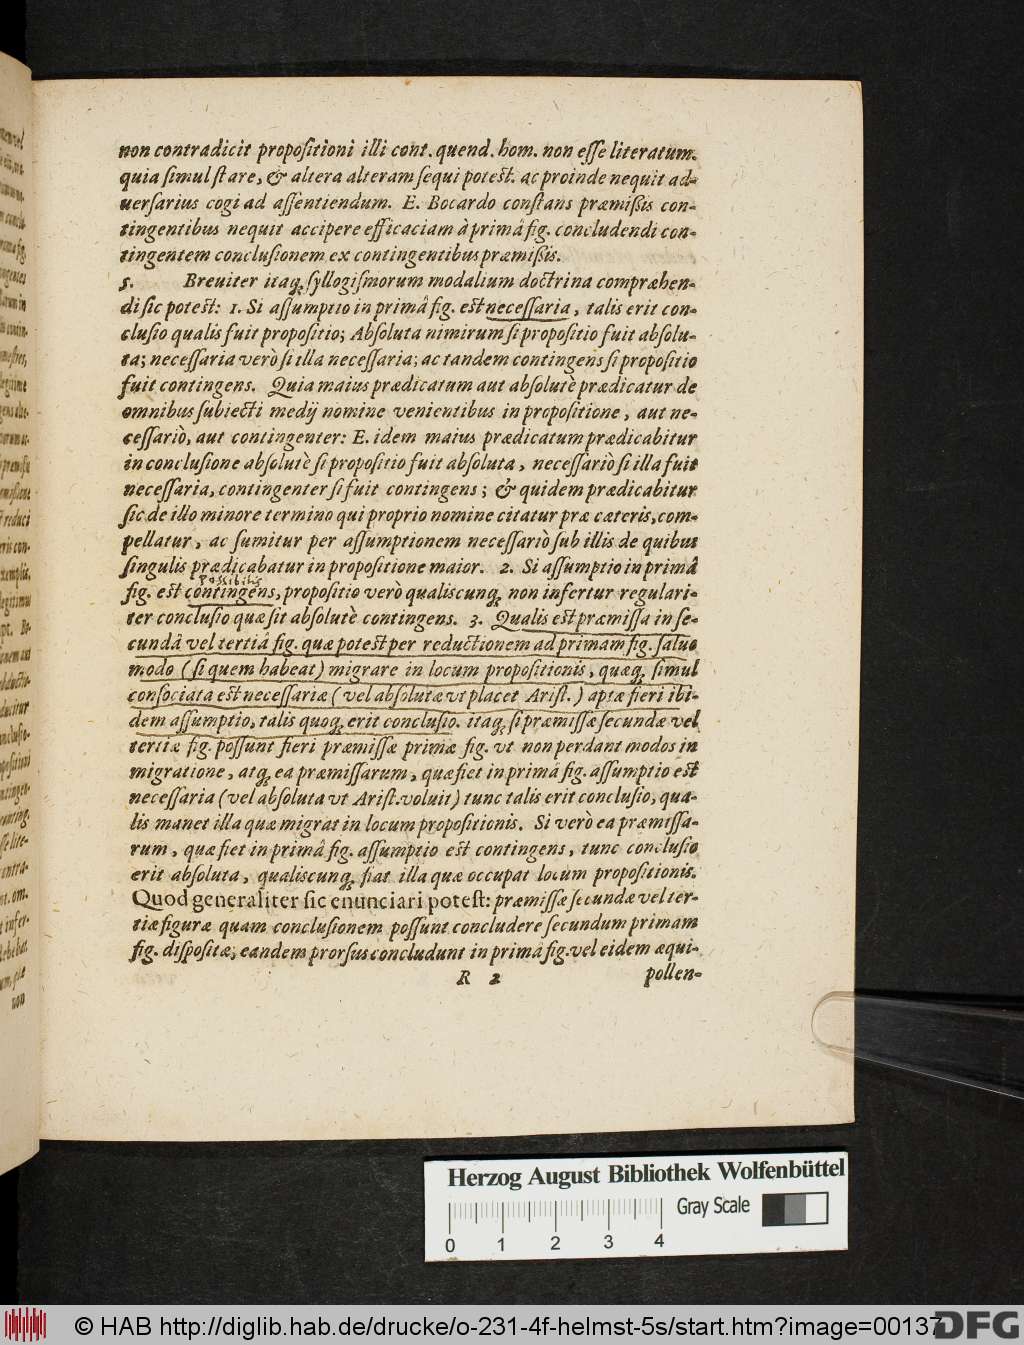 non contradicit propositioni illi cont. quend. hom. non esse literatum.
quia simul stare, & altera alteram sequi potest. ac proinde nequit ad-
uersarius cogi ad assentiendum. E. Bocardo constans præmißis con-
tingentibus nequit accipere efficaciam à primâ fig. concludendi con-
tingentem conclusionem ex contingentibus præmißis.
5. Breuiter itaq; syllogismorum modalium doctrina compræhen-
di sic potest: 1. Si assumptio in primâ fig. est necessaria, talis erit con-
clusio qualis fuit propositio; Absoluta nimirum si propositio fuit absolu-
ta; necessaria verò si illa necessaria; ac tandem contingens si propositio
fuit contingens. Quia maius prædicatum aut absolutè prædicatur de
omnibus subiecti medij nomine venientibus in propositione, aut ne-
cessariò, aut contingenter: E. idem maius prædicatum prædicabitur
in conclusione absolutè si propositio fuit absoluta, necessariò si illa fuit
necessaria, contingenter si fuit contingens; & quidem prædicabitur
sic de illo minore termino qui proprio nomine citatur præ cæteris, com-
pellatur, ac sumitur per assumptionem necessariò sub illis de quibus
singulis prædicabatur in propositione maior. 2. Si assumptio in primâ
possibilis
fig. est contingens, propositio verò qualiscunq; non infertur regulari-
ter conclusio quæ sit absolutè contingens. 3. Qualis est præmissa in se-
cundâ vel tertiâ fig. quæ potest per reductionem ad primam fig. saluo
modo (si quem habeat) migrare in locum propositionis, quæq; simul
consociata est necessariæ (vel absolutæ vt placet Arist.) aptæ fieri ibi-
dem assumptio, talis quoq; erit conclusio. itaq; si præmissæ secundæ vel
tertiæ fig. possunt fieri præmissæ primæ fig. vt non perdant modos in
migratione, atq; ea præmissarum, quæ fiet in primâ fig. assumptio est
necessaria (vel absoluta vt Arist. voluit) tunc talis erit conclusio, qua-
lis manet illa quæ migrat in locum propositionis. Si verò ea præmissa-
rum, quæ fiet in primâ fig. assumptio est contingens, tunc conclusio
erit absoluta, qualiscunq; fiat illa quæ occupat locum propositionis.
Quod generaliter sic enunciari potest: præmissæ secundæ vel ter-
tiæ figuræ quam conclusionem possunt concludere secundum primam
fig. dispositæ, eandem prorsus concludunt in primâ fig. vel eidem æqui-
R 2 pollen-
Herzog August Bibliothek Wolfenbüttel
Gray Scale
0 1 2 3 4
© HAB http://diglib.hab.de/drucke/o-231-4f-helmst-5s/start.htm?image=00137
DFG